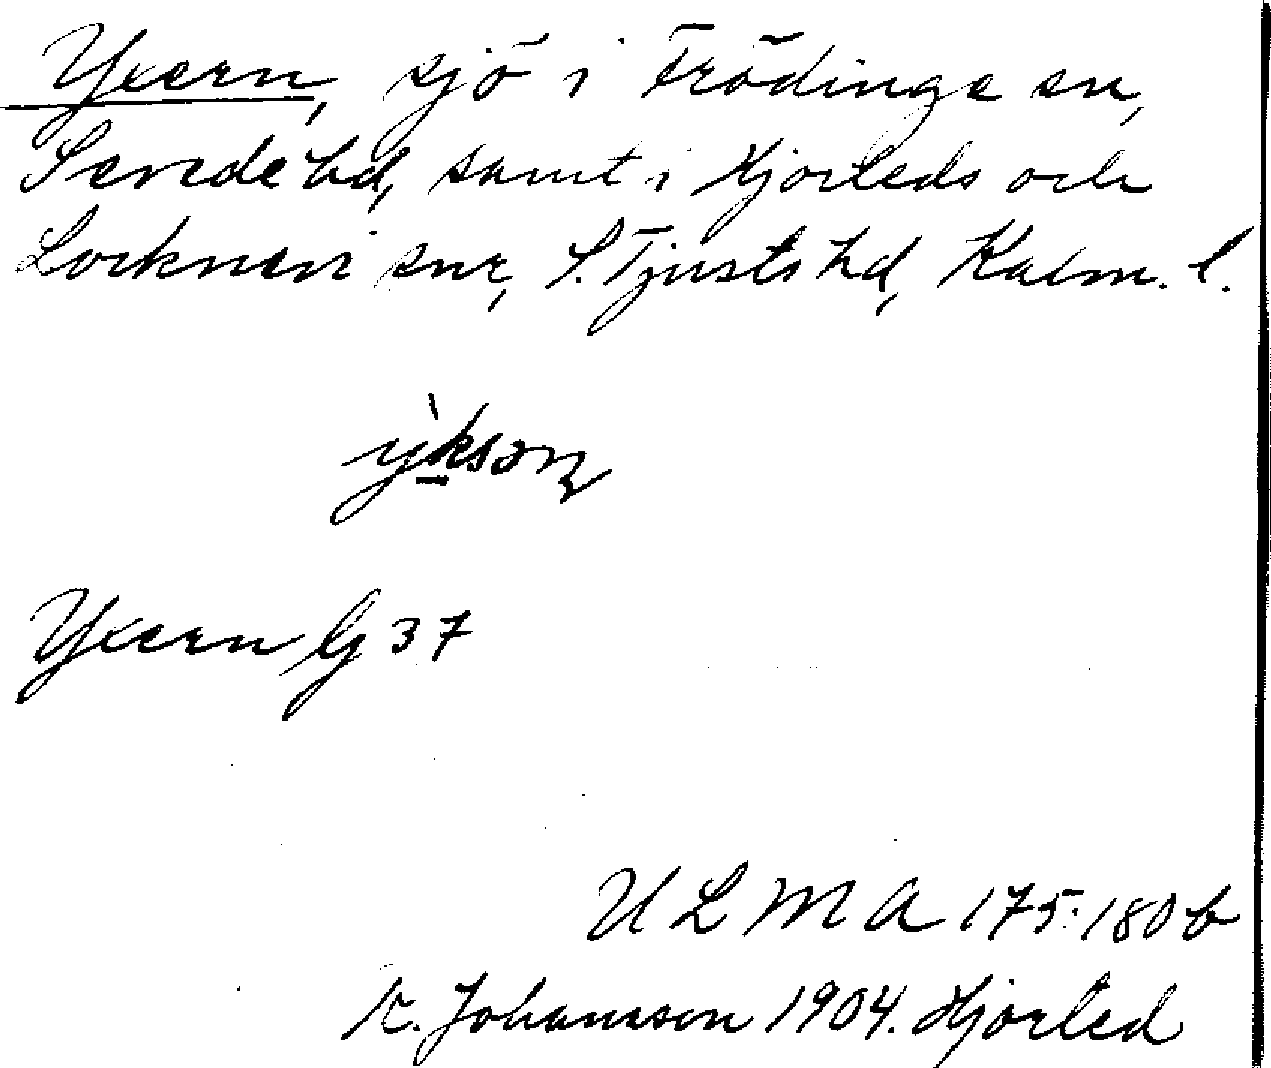 Yxern, sjö i Frödinge sn,
Sevede hd, samt i Hjorteds och
Locknevi snr, S. Tjusts hd, Kalm. l.
ỳksən
Yxern G 37
ULMA 175:180 b
K. Johansson 1904. Hjorted